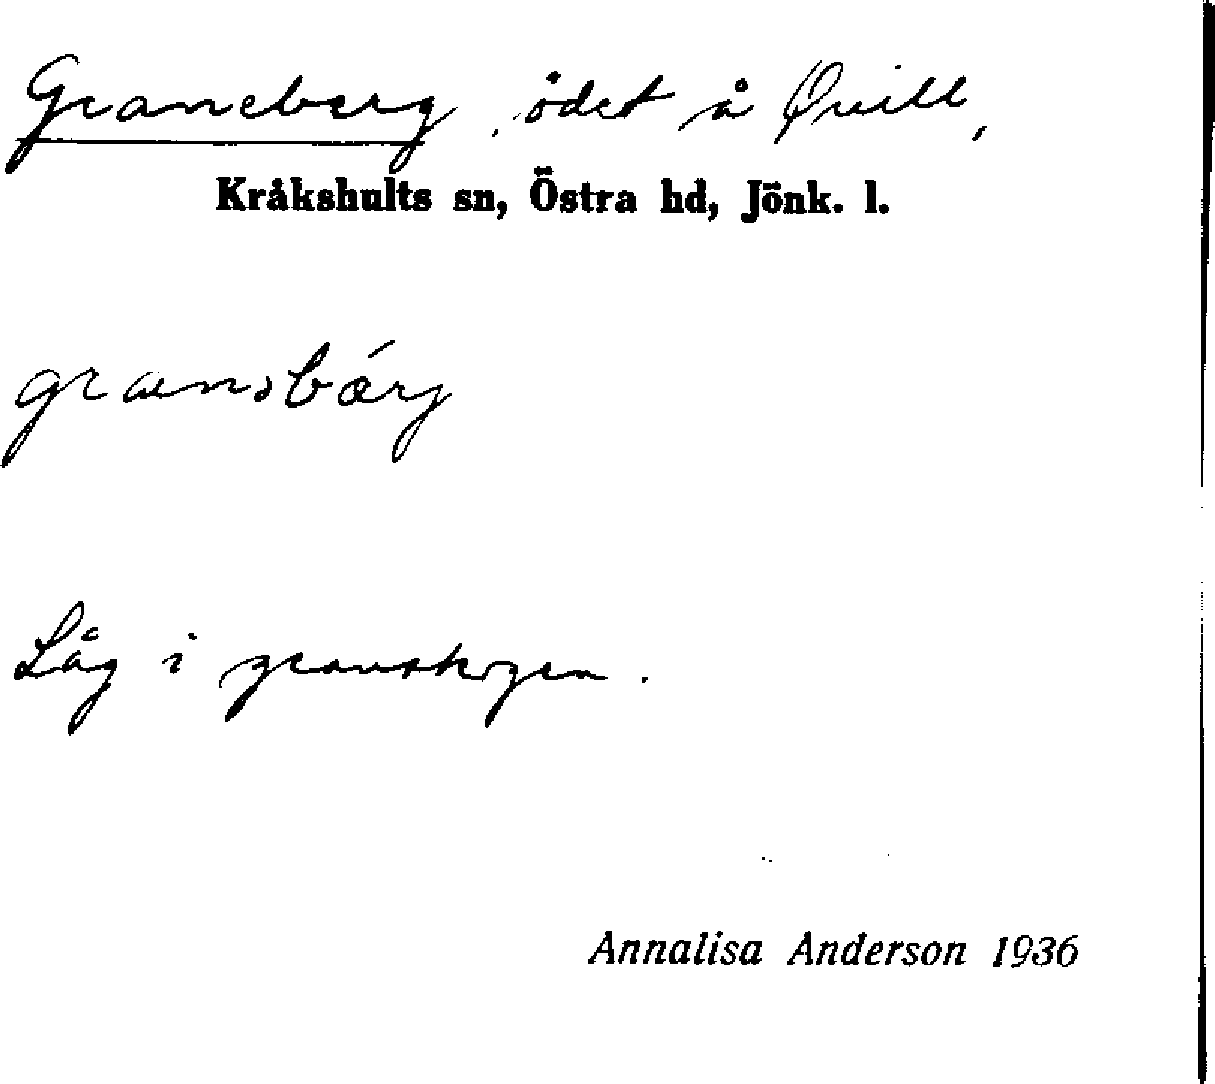 Graneberg, ödet å Qvill,
Kråkshults sn, Östra hd, Jönk. l.
Låg i granskogen.
Annalisa Anderson 1936